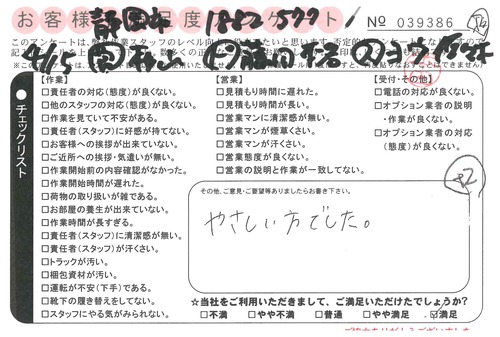 お客様満足度アンケート! No 039386
チェックリスト
【作業】
□責任者の対応(態度)が良くない。
□他のスタッフの対応(態度)が良くない。
□作業を見ていて不安がある。
□責任者(スタッフ)に好感が持てない。
□お客様への挨拶が出来ていない。
□ご近所への挨拶・気遣いが無い。
□作業開始前の内容確認がなかった。
□作業開始時間が遅れた。
□荷物の取り扱いが雑である。
□お部屋の養生が出来ていない。
□作業時間が長すぎる。
□責任者(スタッフ)に清潔感が無い。
□責任者(スタッフ)が汗くさい。
□トラックが汚い。
□梱包資材が汚い。
□運転が不安(下手)である。
□靴下の履き替えをしてない。
□スタッフにやる気がみられない。
【営業】
□見積もり時間に遅れた。
□見積もり時間が長い。
□営業マンに清潔感が無い。
□営業マンが煙草くさい。
□営業マンが汗くさい。
□営業態度が良くない。
□営業の説明と作業が一致してない。
【受付・その他】
□電話の対応が良くない。
□オプション業者の説明
・作業が良くない。
□オプション業者の対応
(態度)が良くない。
その他、ご意見・ご要望等ありましたらお書き下さい。
やさしい方でした。
☆当社をご利用いただきまして、ご満足いただけたでしょうか?
□不満 □やや不満 □普通 □やや満足 ☑満足